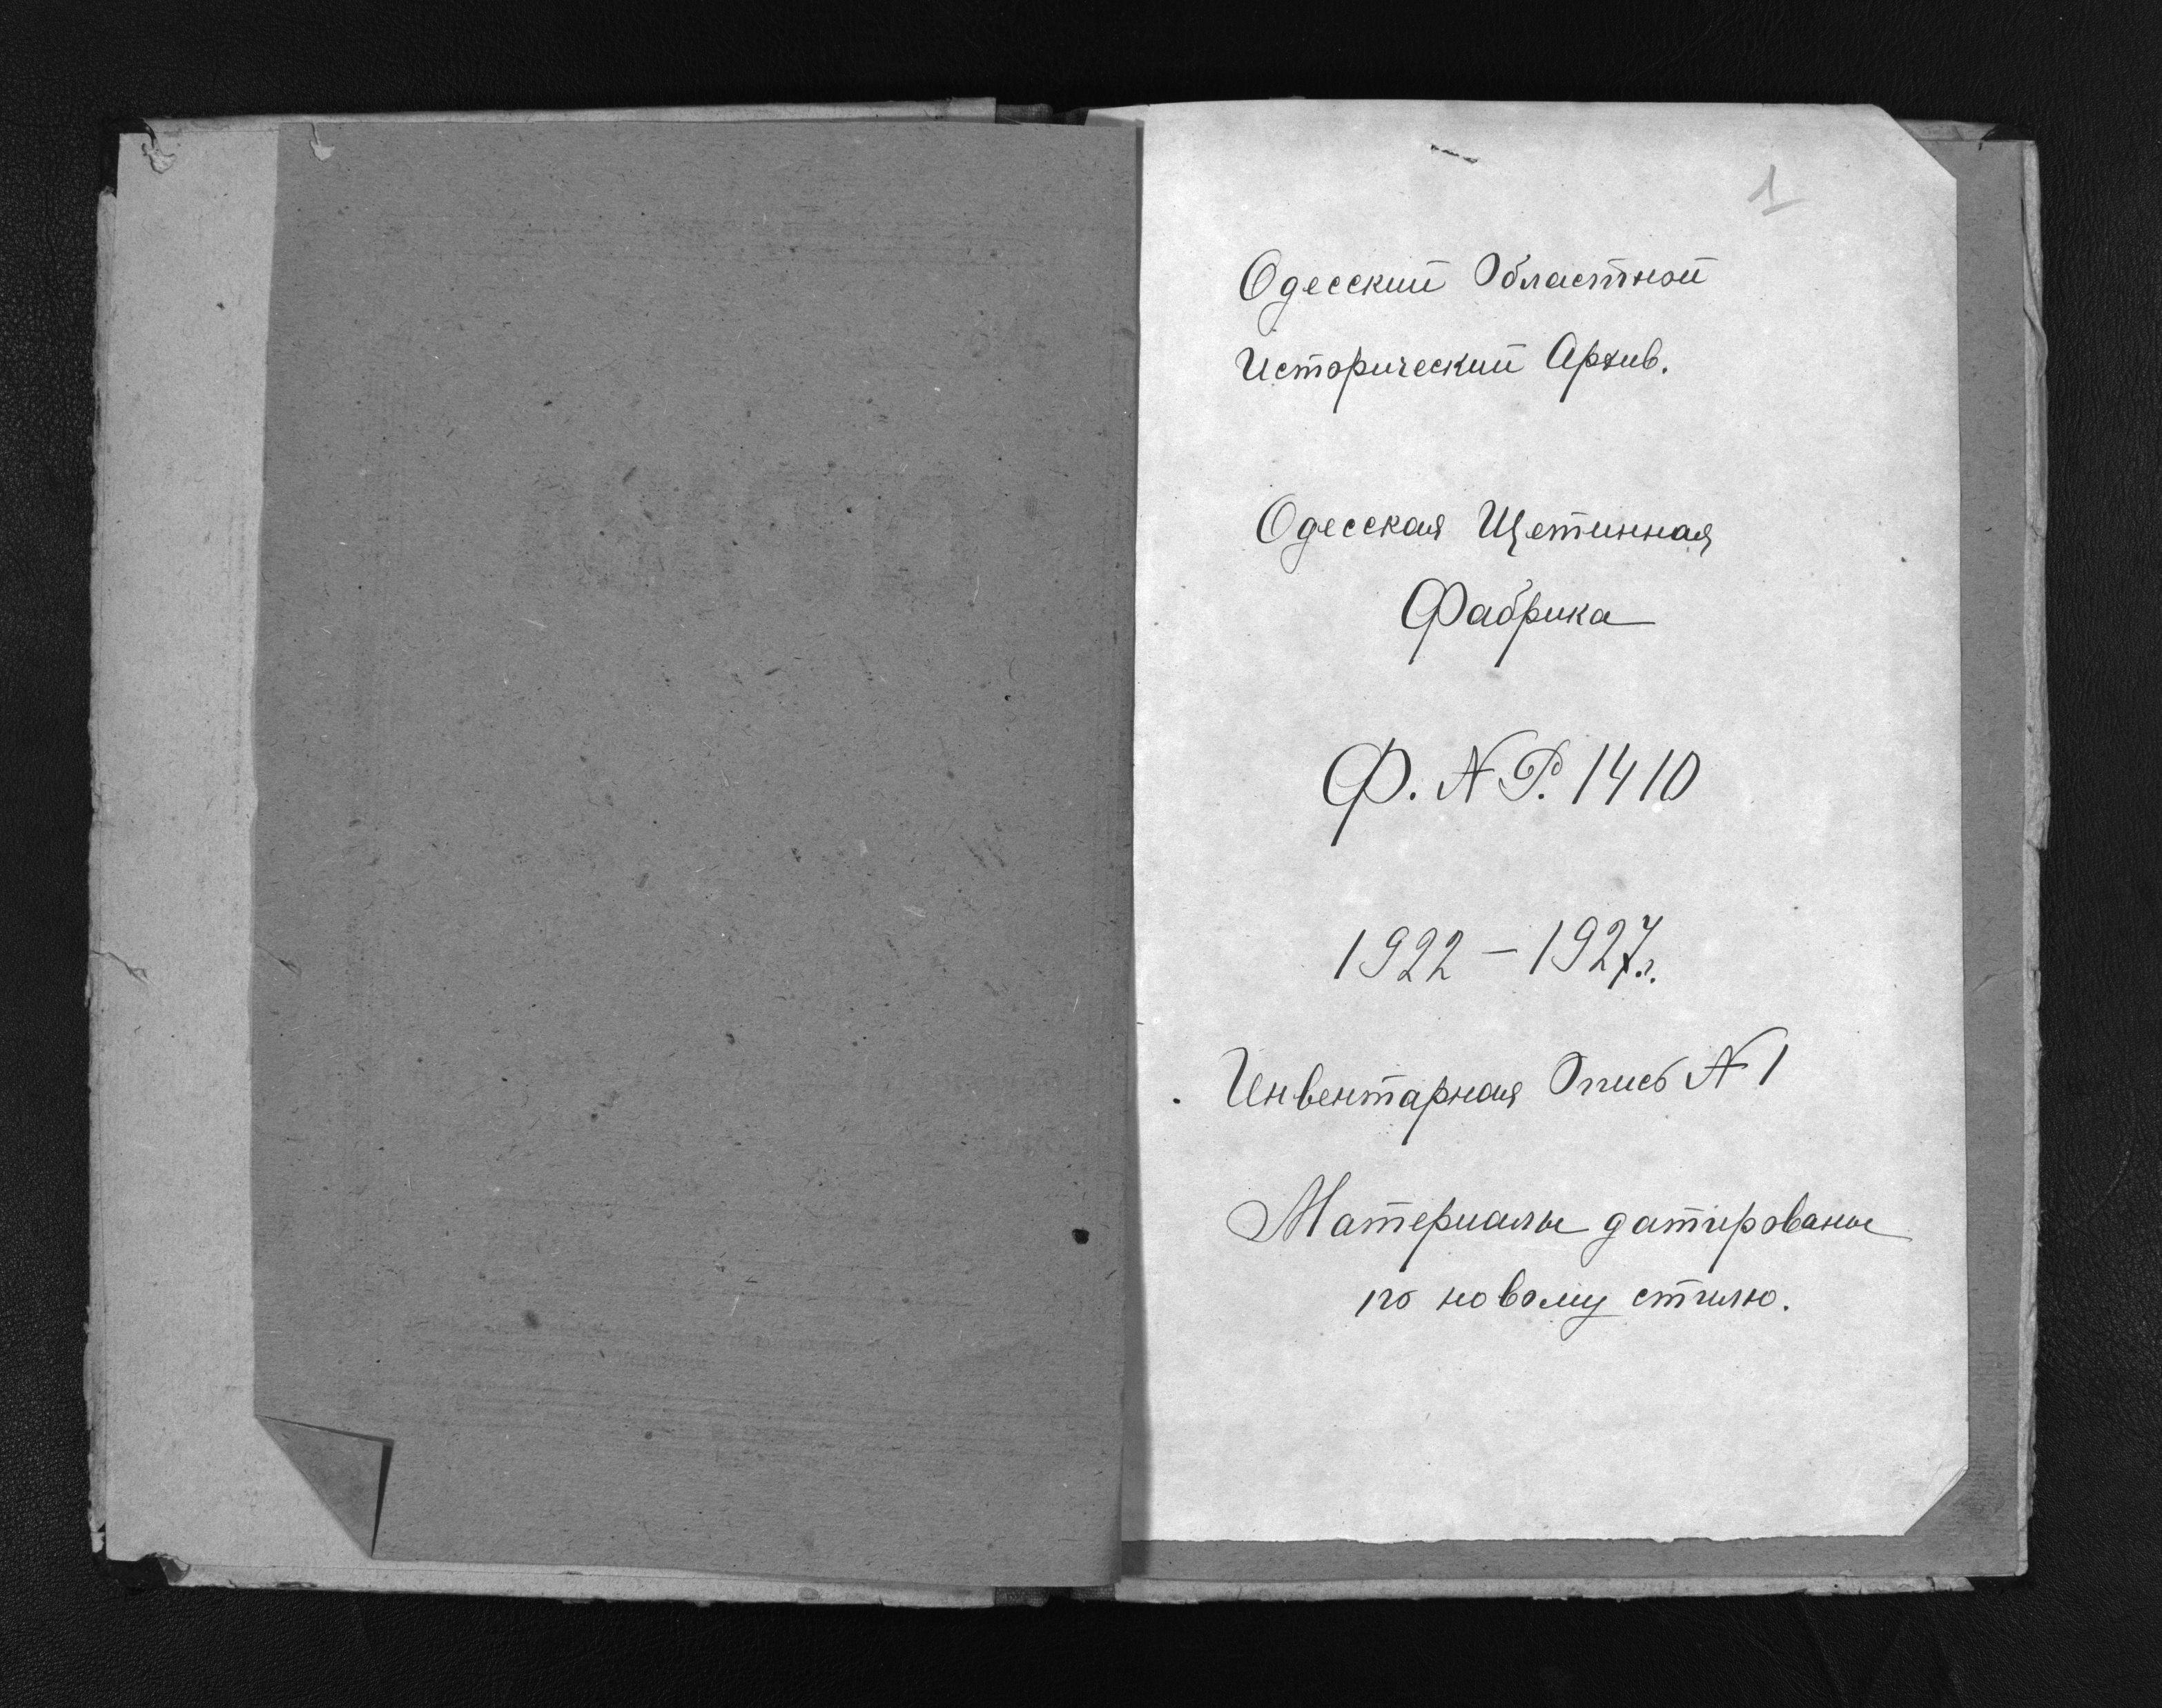 1
Одесский Областной
Исторический Архив.
Одесская Щетинная
Фабрика
Ф. № Р. 1410
1922 – 1927 г.
Инвентарная Опись № 1
Материалы датированы
по новому стилю.